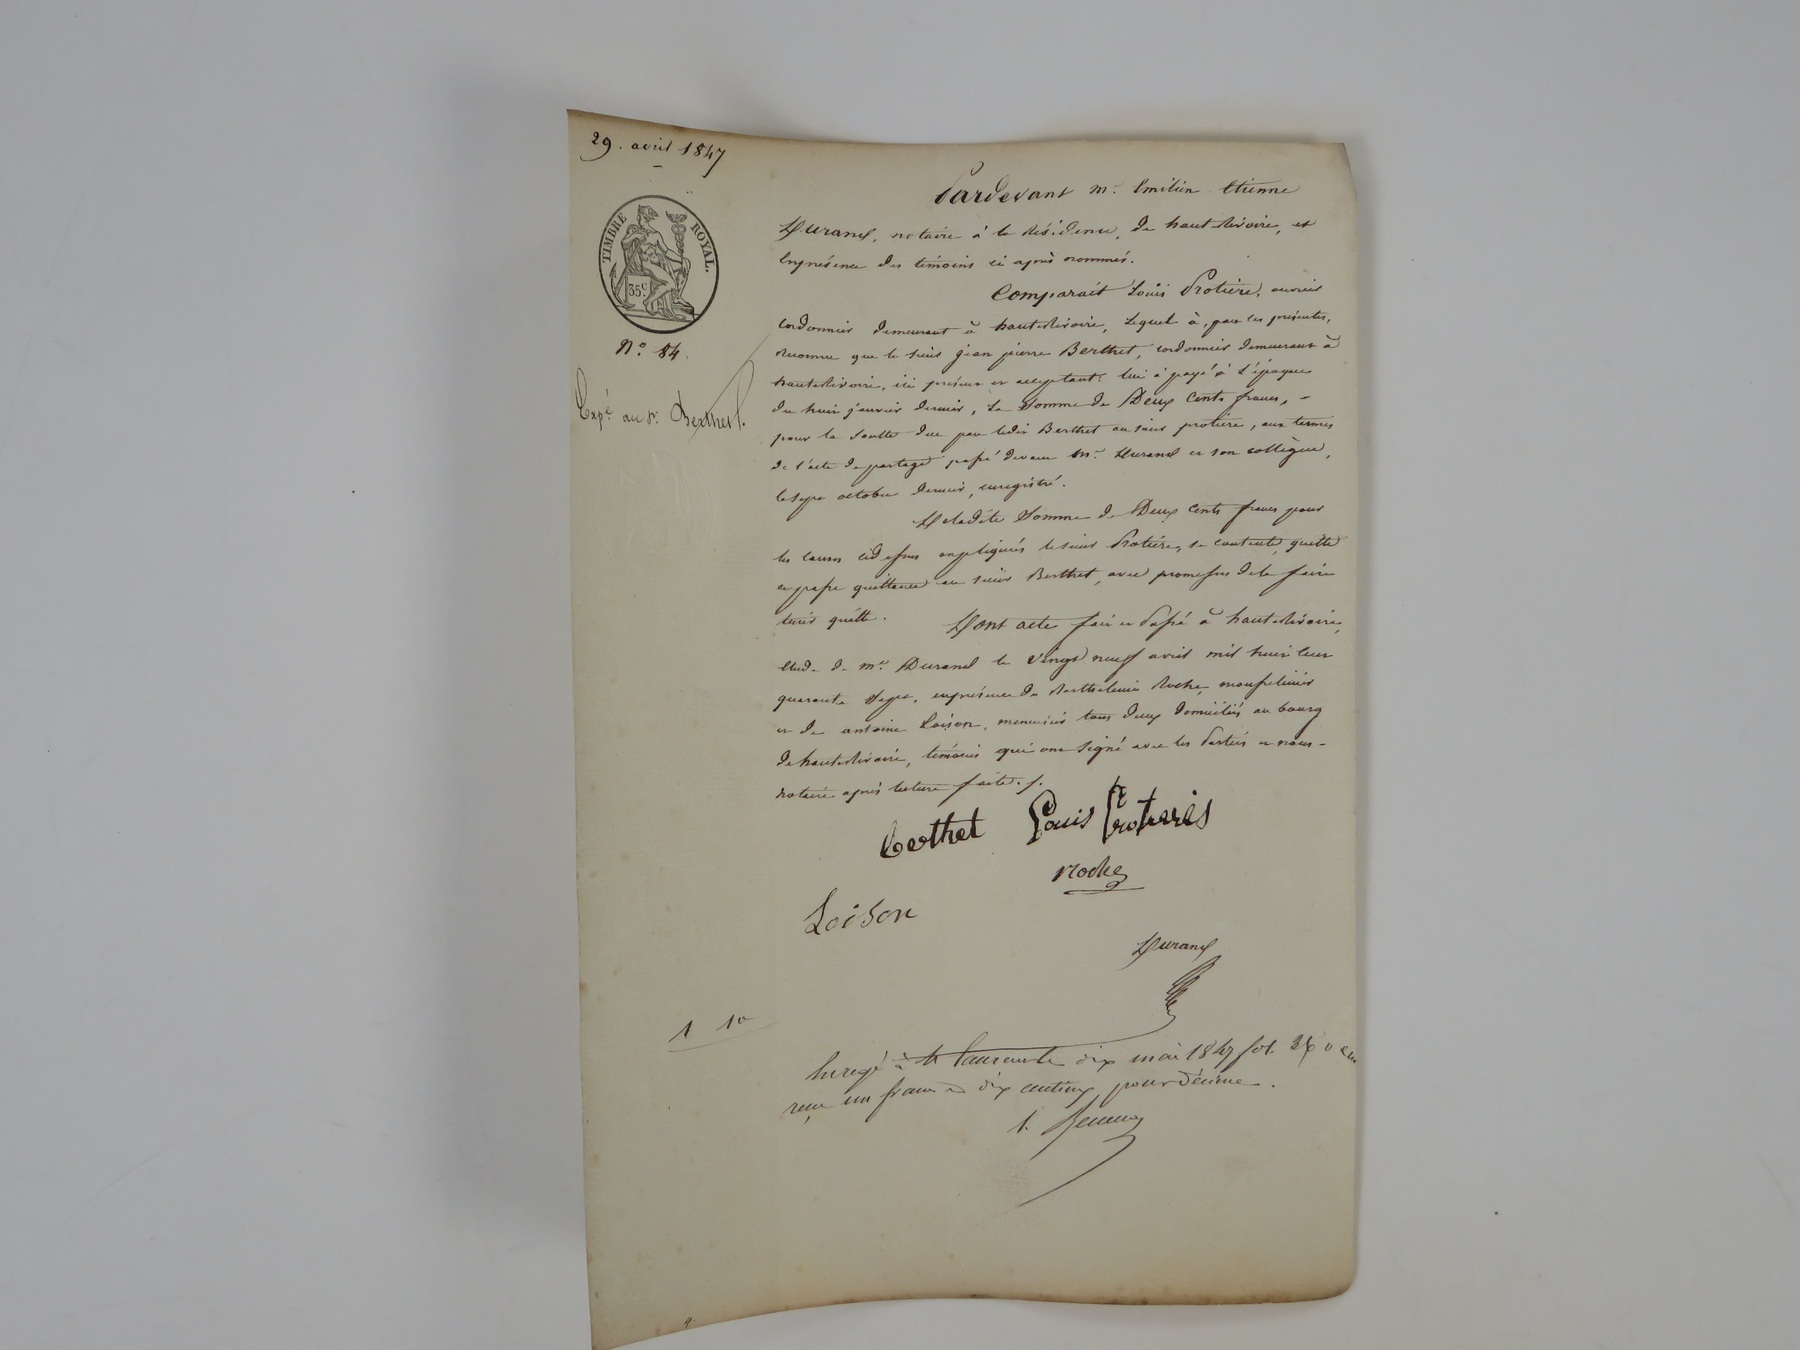 29. avril 1847
TIMBRE ROYAL.
35c.
N.o 84.
Expé. au Sr. Berthet.
Pardevant me. Emilien Etienne
Durand, notaire à la Résidence, de haut-Rivoire, et
Enprésence des témoins ci après nommés.
Comparait Louis Protière, ouvrier
Cordonnier demeurant à haute-Rivoire, Lequel à, par ces présentes,
Reconnu que le sieur jean pierre Berthet, cordonnier demeurant à
haute-Rivoire, ici présent et acceptant; lui à payé à L'époque
du huit janvier dernier, La Somme de Deux Cents francs, -
pour la Soulte due par ledit Berthet au sieur protière, aux termes
de l'acte de partage passé devant Me. Durand et son collègue,
le sept octobre dernier, enregistré.
De ladite Somme de Deux Cents francs pour
les causes cidessus expliquées le sieur Protière, se contente, quitte
et passe quittance au sieur Berthet, avec promesse de le faire
tenir quitte.
Dont acte fait et Passé à haute-Rivoire,
Etude de me. Durand le vingt neuf avril mil huit Cent
quarante Sept, enprésence de Barthelemie Roche, mousselinier
et de antoine Loison, menuisier tous deux domiciliés au bourg
de haute-Rivoire, témoins qui ont Signé avec les Parties et nous-
notaire après lecture faite./.
berthet Louis Protières
Roche
Loison
Durand
1 10
Enregé à St Laurent le dix mai 1847 fol. 36 v
reçu un franc et dix centimes pour décime.